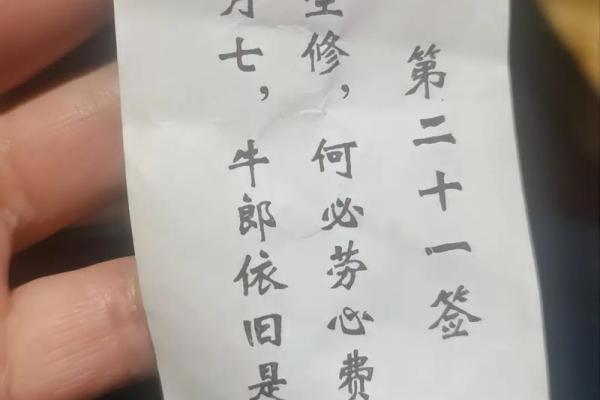 第二十一签
修，何必劳心费
七，牛郎依旧是